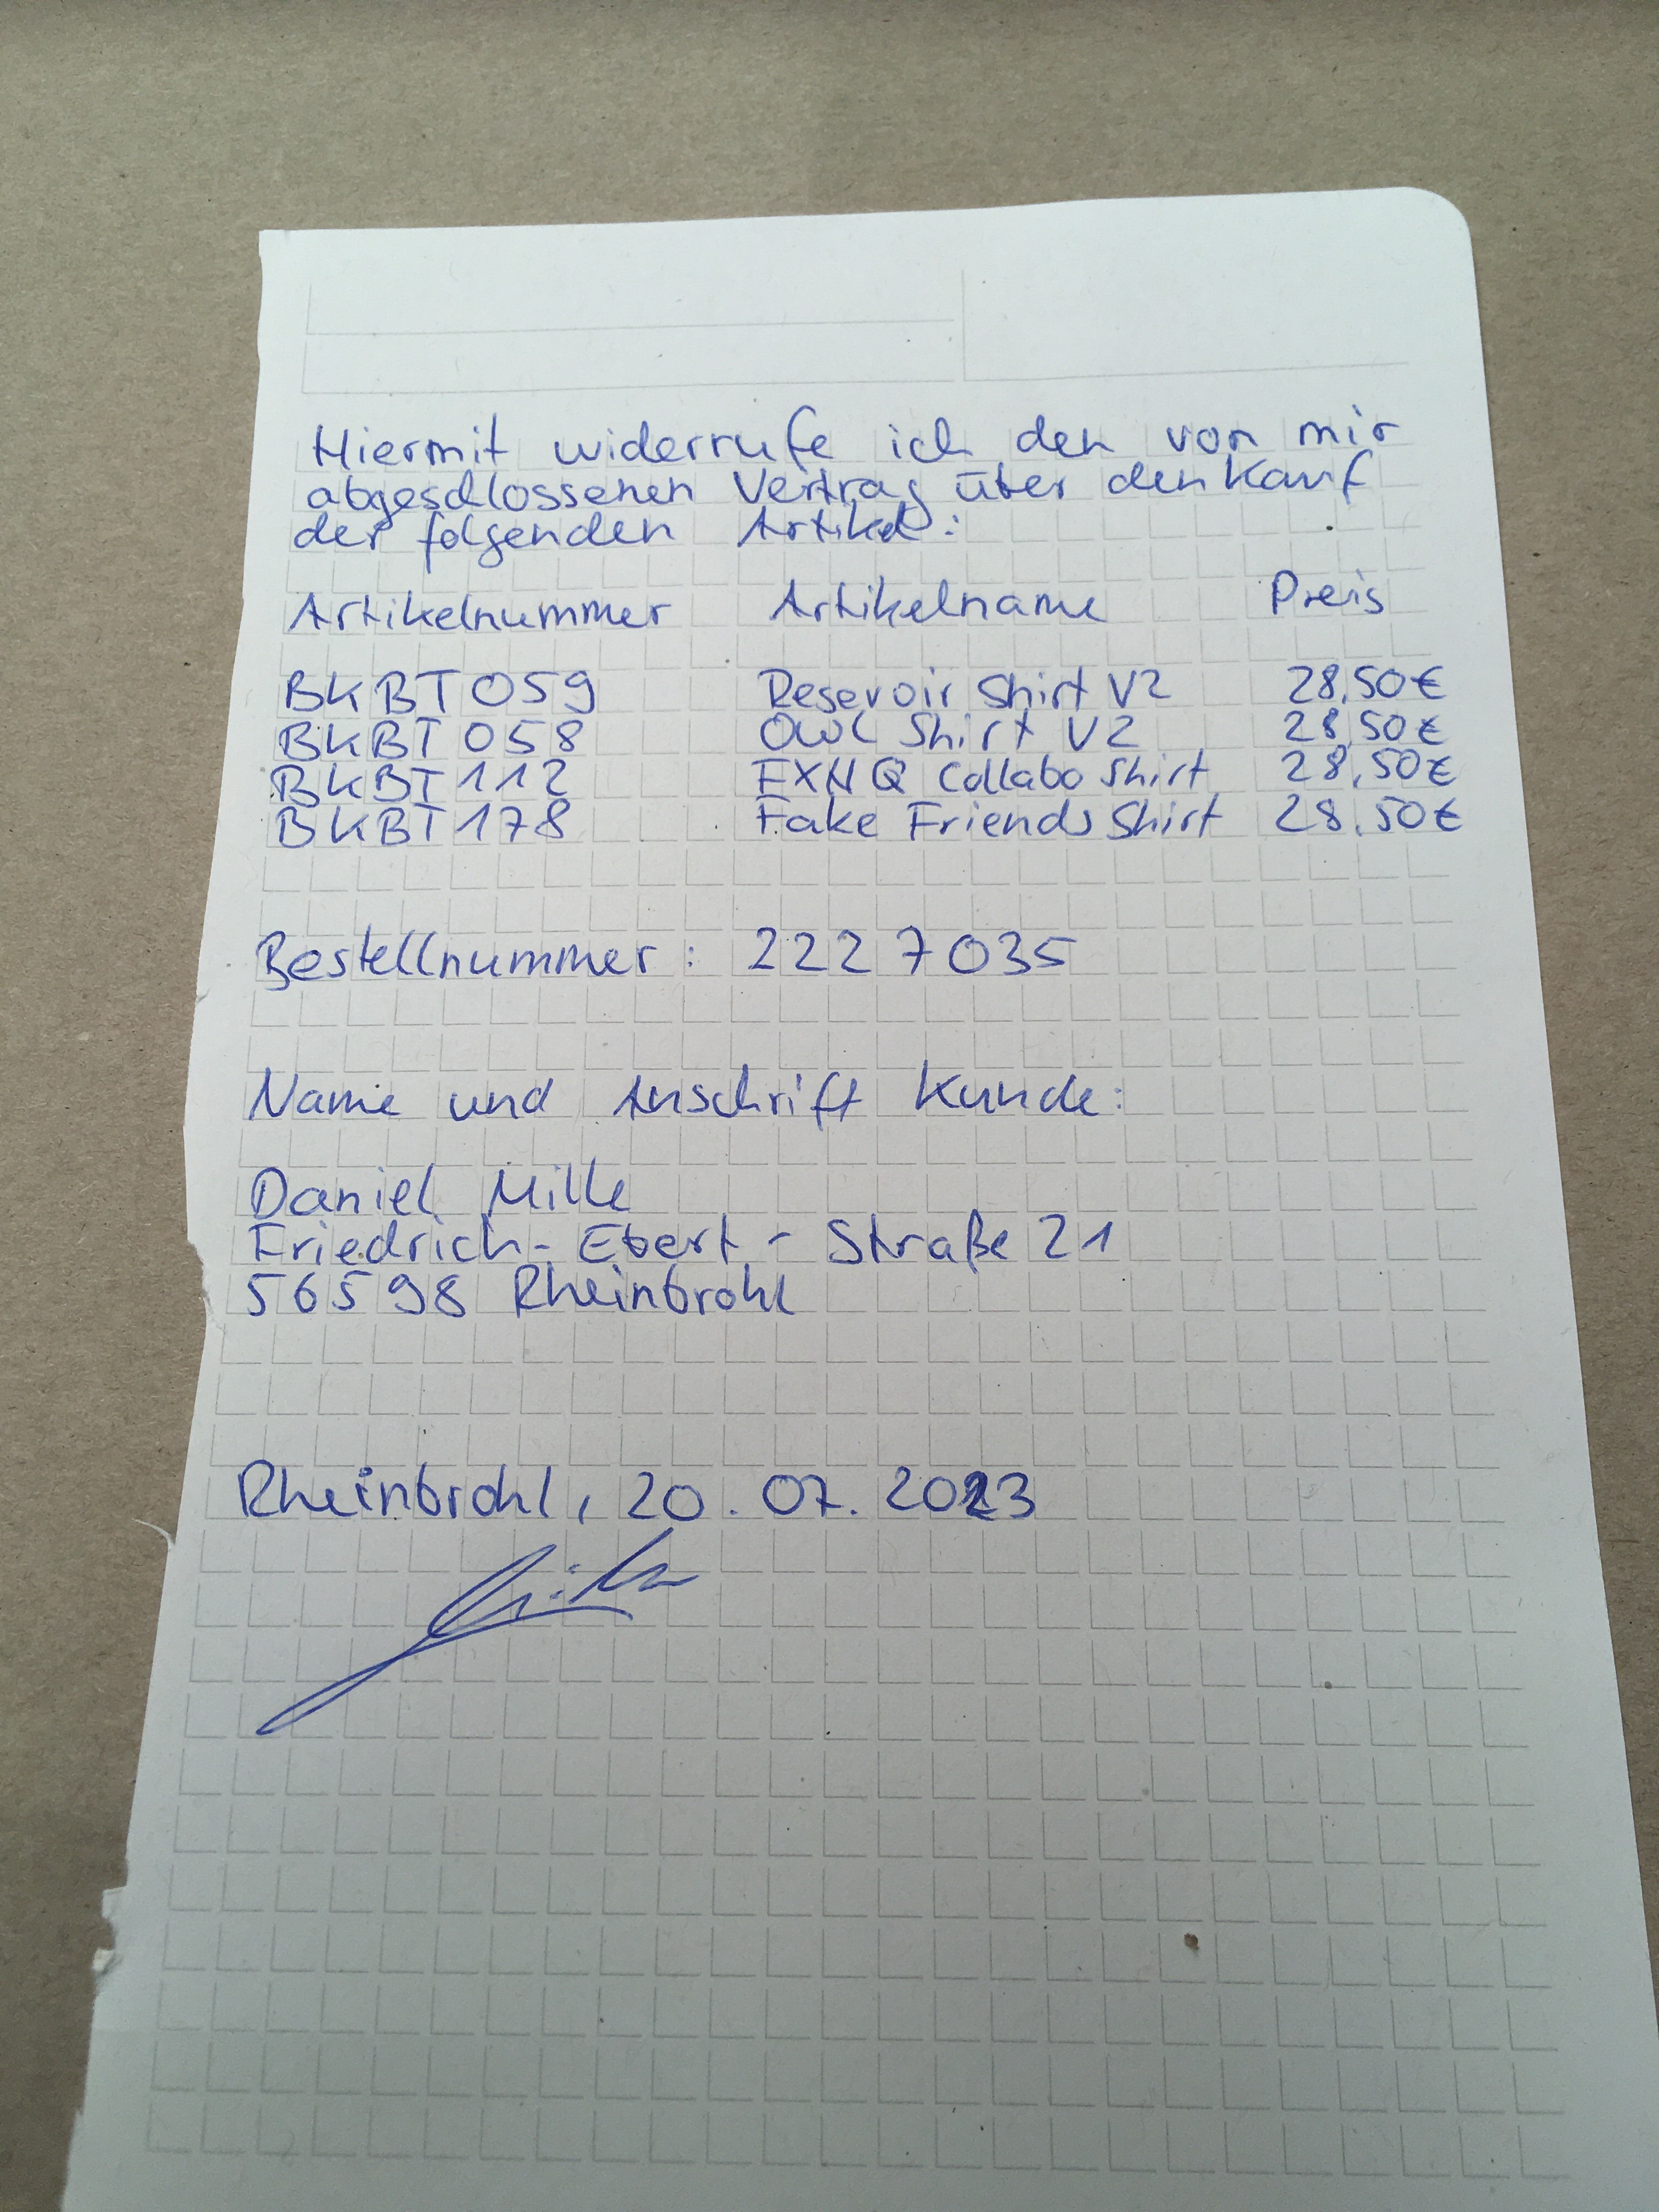 Hiermit widerrufe ich den von mir
abgeschlossenen Vertrag über den Kauf
der folgenden Artikel:
Artikelnummer Artikelname Preis
BKBT059 Reservoir Shirt V2 28,50€
BKBT058 Owl Shirt V2 28,50€
BKBT112 FXNQ Collabo Shirt 28,50€
BKBT178 Fake Friends Shirt 28,50€
Bestellnummer: 2227035
Name und Anschrift Kunde:
Daniel Mille
Friedrich-Ebert-Straße 21
56598 Rheinbrohl
Rheinbrohl, 20.07.2023